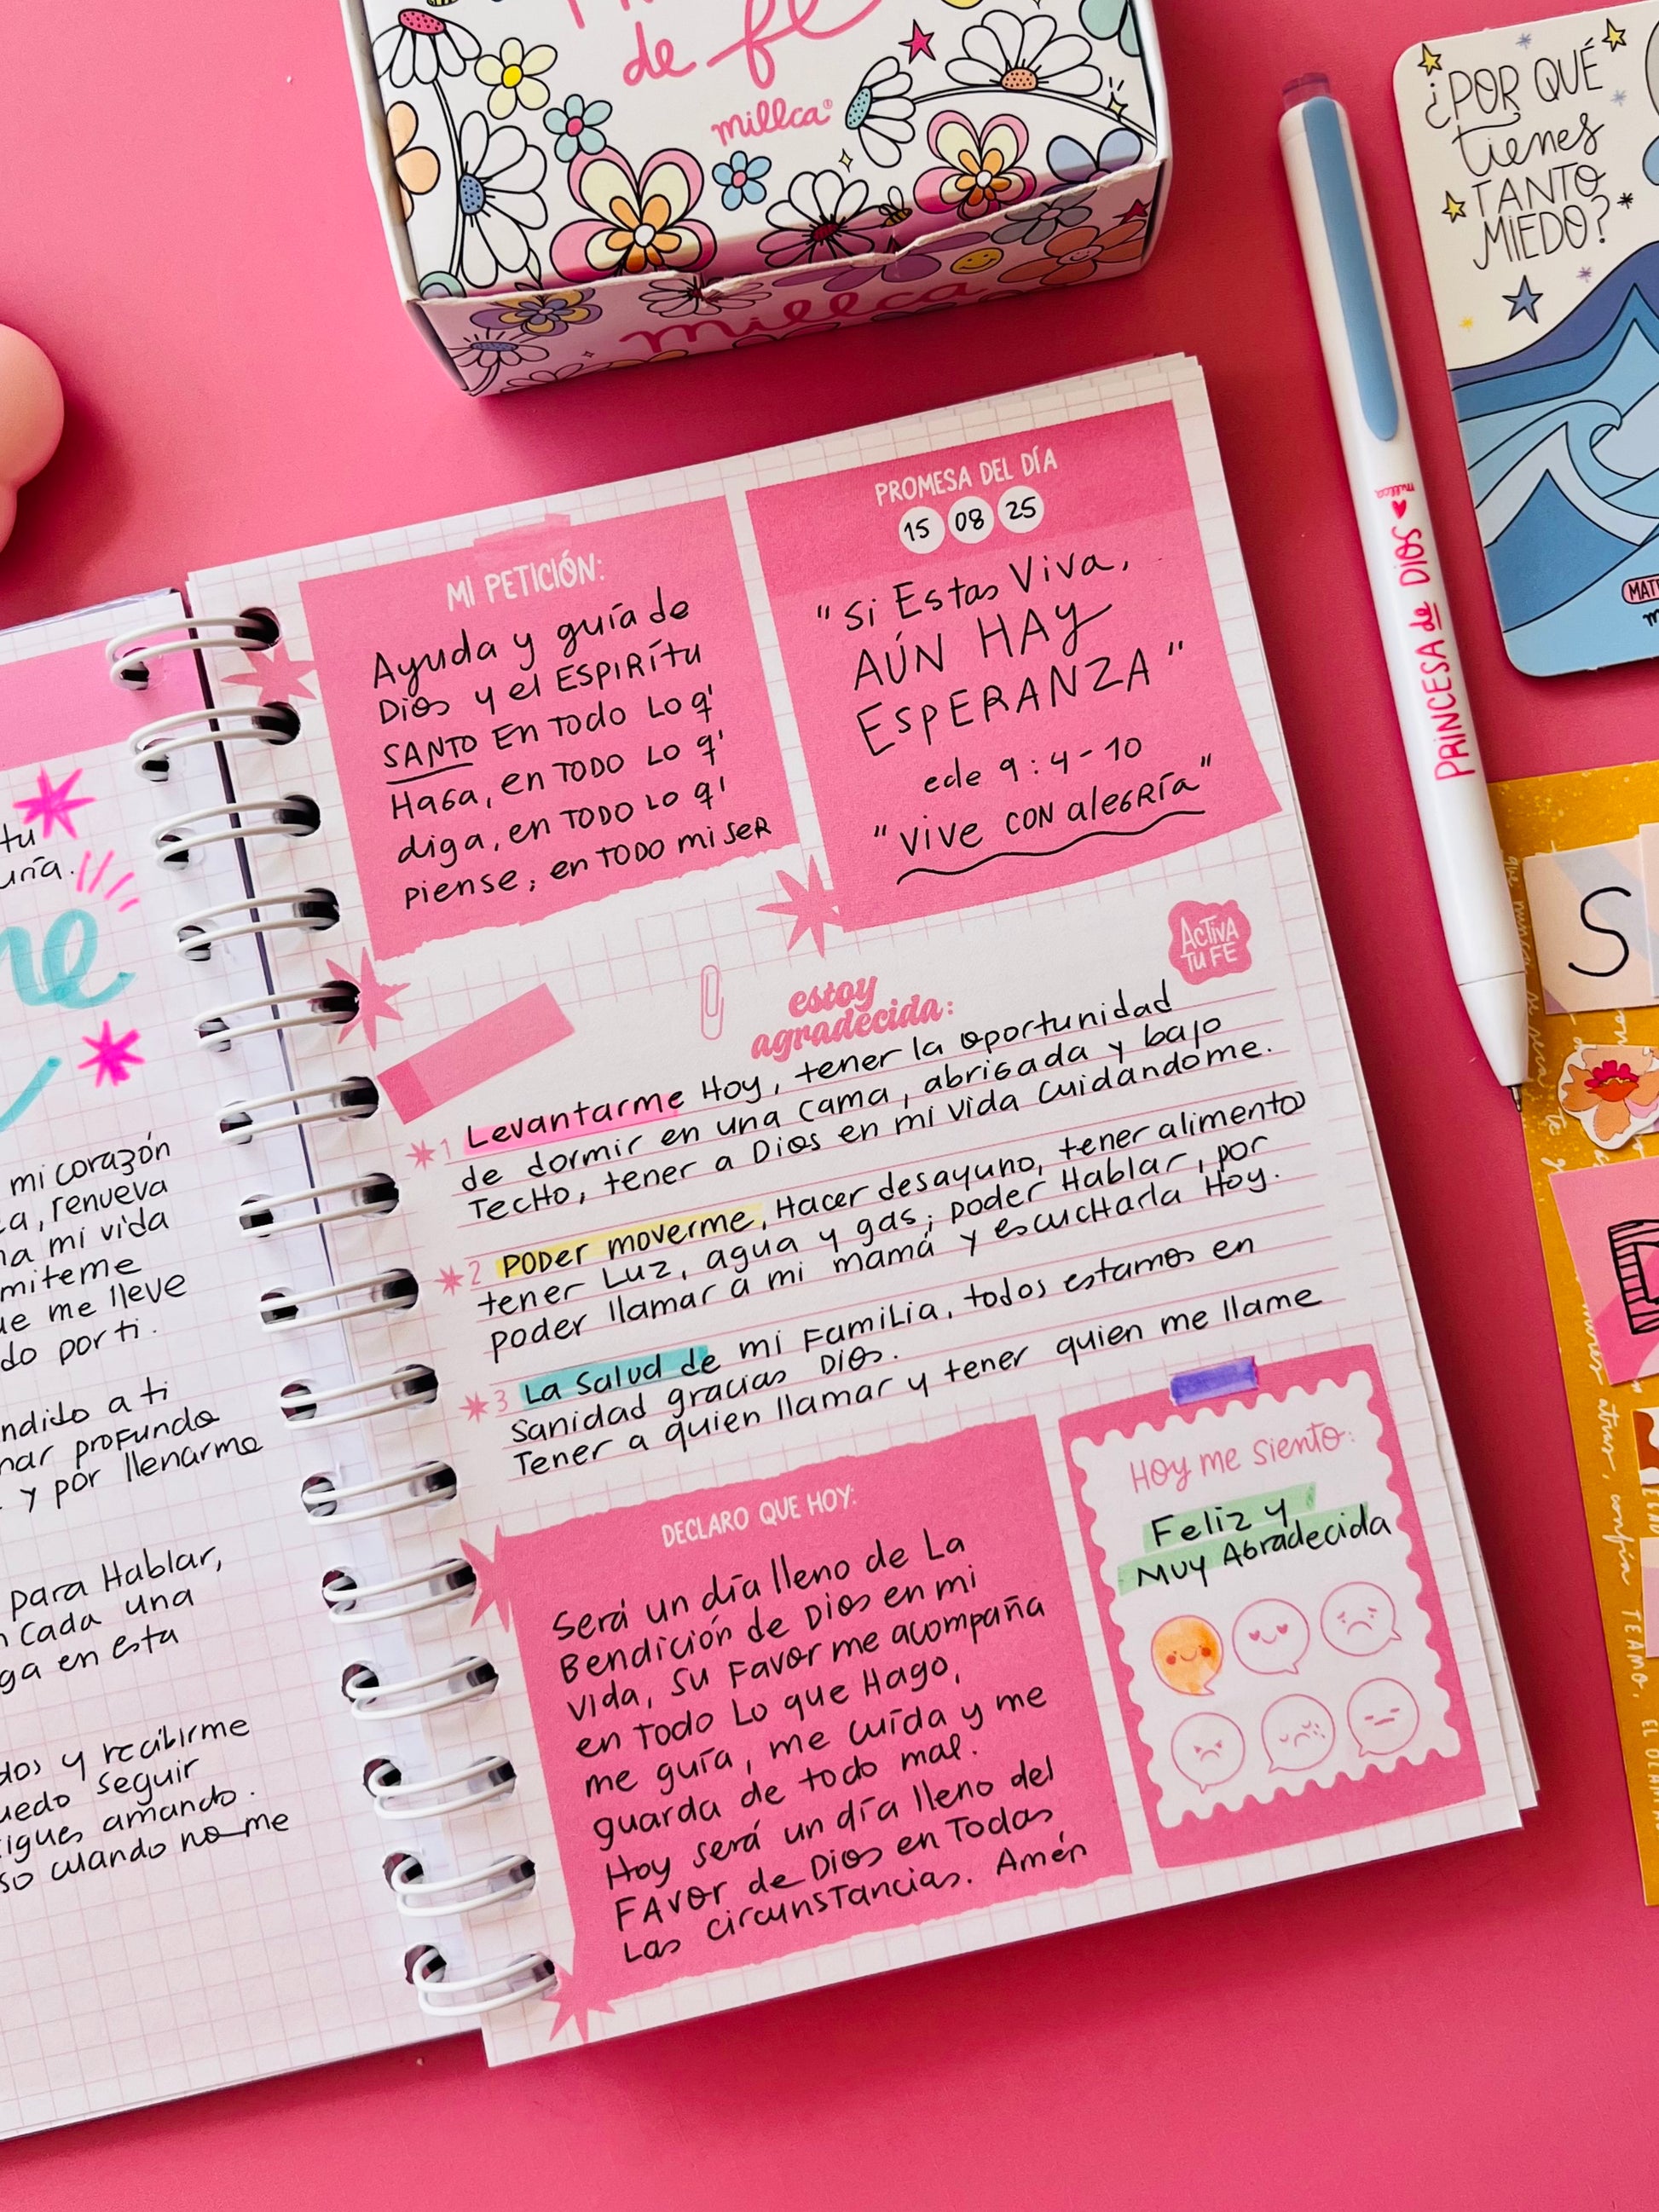 de fe
millca
millca
¿POR QUÉ
tienes
TANTO
MIEDO?
PRINCESA de DIOS ♥ millca
MI PETICIÓN:
Ayuda y guía de
Dios y el ESPIRÍtu
SANTO En TODO LO q'
HaGa, en TODO LO q'
diga, en TODO LO q'
piense, en TODO mi seR
PROMESA DEL DÍA
15 08 25
"Si Estas Viva,
AÚN HAY
ESPERANZA"
ecle 9:4-10
"vive CON aleGRía"
ACTIVA
TU FE
estoy
agradecida:
1 Levantarme Hoy, tener la oportunidad
de dormir en una cama, abrigada y bajo
TecHo, tener a Dios en mi vida cuidandome.
2 PODer moverme, Hacer desayuno, tener alimento
tener Luz, agua y gas, poder Hablar, por
poder llamar a mi mamá y escucHarla Hoy.
3 La Salud de mi Familia, todos estamos en
Sanidad gracias Dios.
Tener a quien llamar y tener quien me llame
DECLARO QUE HOY:
Será un día lleno de La
Bendición de Dios en mi
vida, su Favor me acompaña
en Todo Lo que Hago,
me guía, me cuida y me
guarda de todo mal.
Hoy será un día lleno del
FAvor de Dios en Todas
Las circunsTancias. Amén
Hoy me siento:
Feliz y
MUY AGradecida
tu
mi corazón
, renueva
mi vida
miteme
me lleve
do por ti.
ndido a ti
profundo
y por llenarme
para Hablar,
cada una
en esta
dos y recibirme
seguir
amando.
cuando no me
S